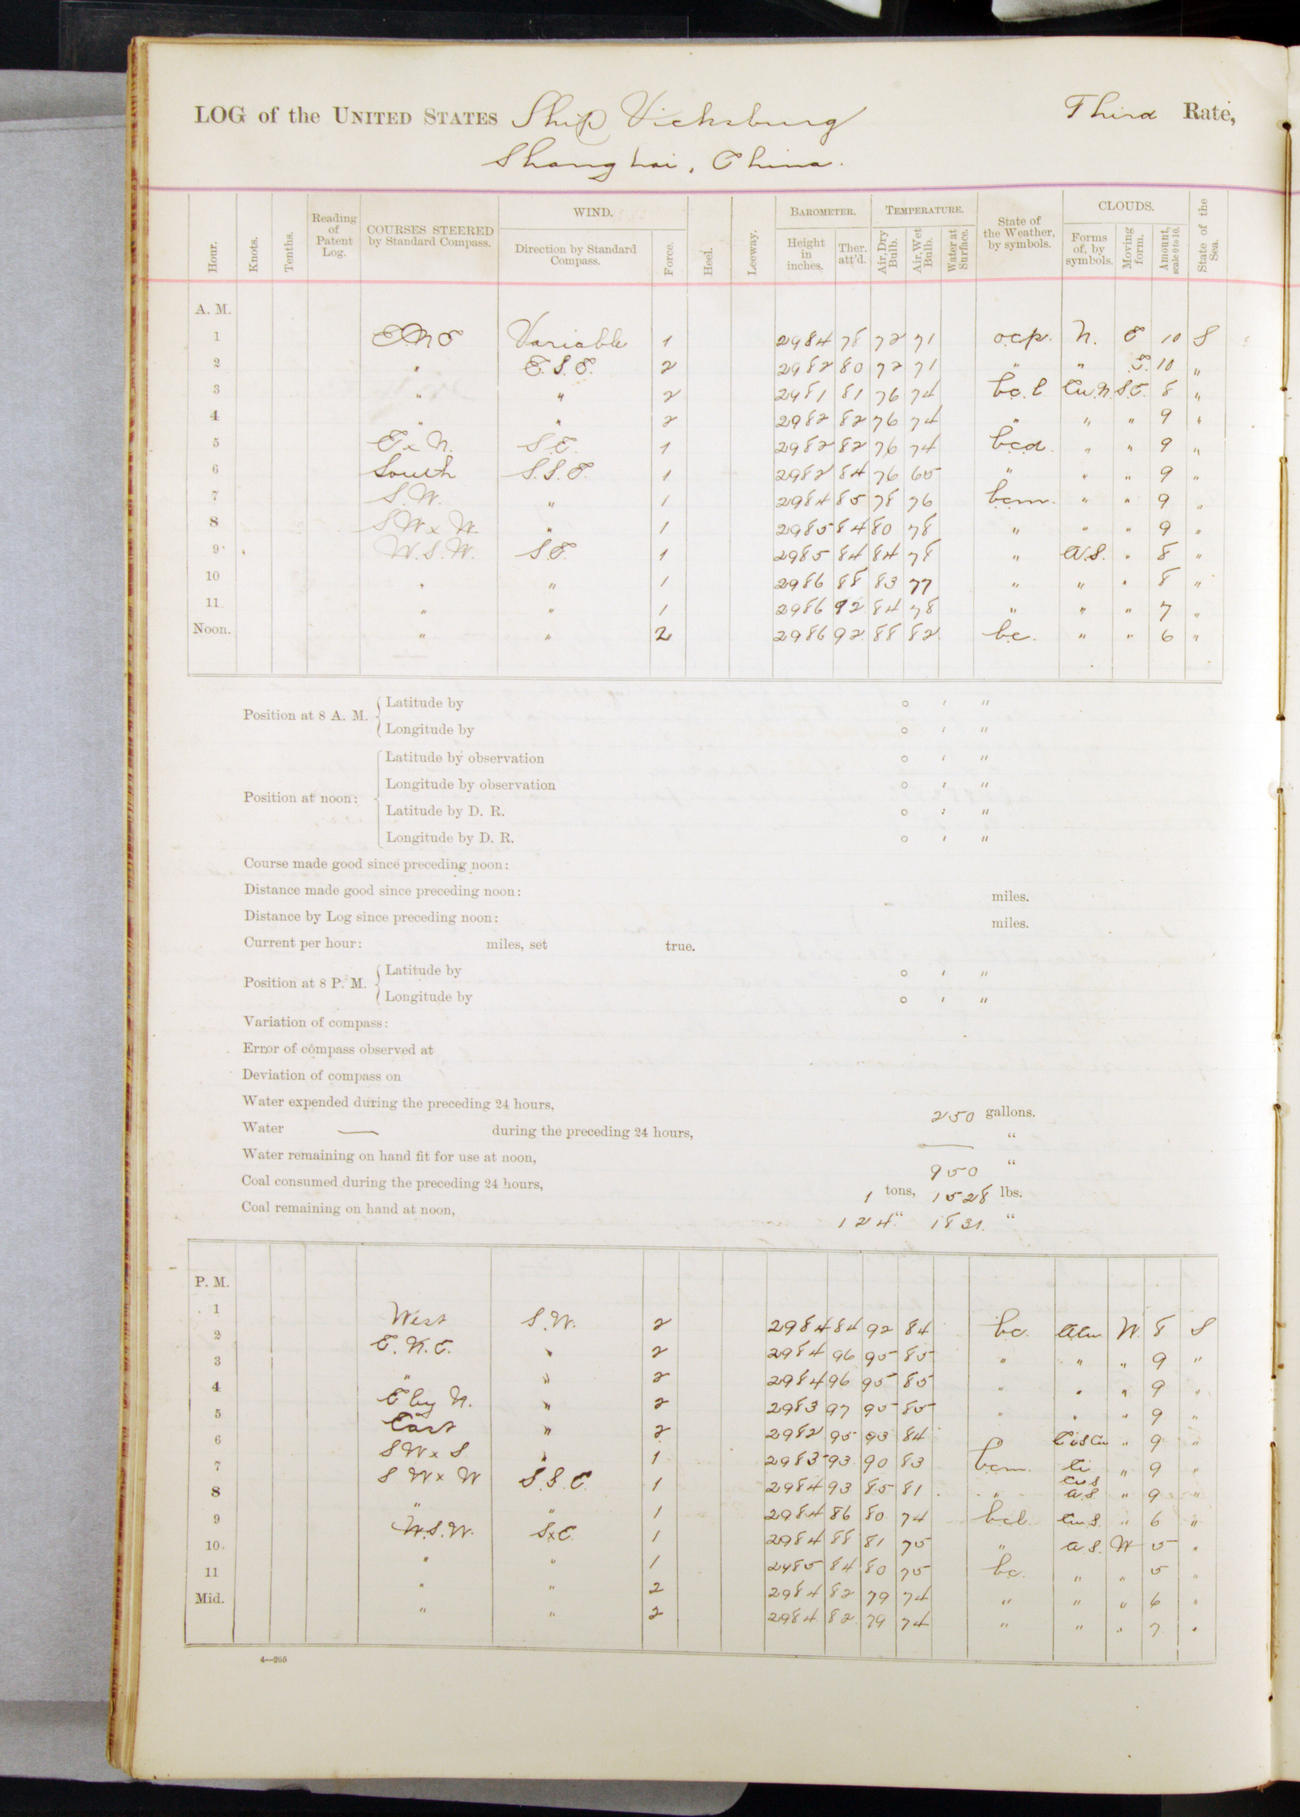 LOG of the UNITED STATES Ship Vicksburg Third Rate,
Shanghai, China.
Hour. Knots. Tenths. Reading of Patent Log. COURSES STEERED by Standard Compass. WIND. Direction by Standard Compass. Force. Heel. Leeway. BAROMETER. Height in inches. Ther. att'd. TEMPERATURE. Air, Dry Bulb. Air, Wet Bulb. Water at Surface. State of the Weather, by symbols. CLOUDS. Forms of, by symbols. Moving form. Amount, scale 0 to 10. State of the Sea.
A. M.
1 ENE Variable 1 2984 78 72 71 ocp. N. E 10 S
2 " E.S.E. 2 2982 80 72 71 " " E. 10 "
3 " " 2 2981 81 76 74 bc.l Cu.N. S.E. 8 "
4 " " 2 2982 82 76 74 " " " 9 "
5 E x N. S.E. 1 2982 82 76 74 bcd. " " 9 "
6 South S.S.E. 1 2982 84 76 65 " " " 9 "
7 S.W. " 1 2984 85 78 76 bcm. " " 9 "
8 SW x W. " 1 2985 84 80 78 " " " 9 "
9 W.S.W. S.E. 1 2985 84 84 78 " A.S. " 8 "
10 " " 1 2986 88 83 77 " " " 8 "
11 " " 1 2986 92 84 78 " " " 7 "
Noon. " " 2 2986 92 88 82 bc. " " 6 "
Position at 8 A. M. Latitude by ° ' "
Longitude by ° ' "
Position at noon: Latitude by observation ° ' "
Longitude by observation ° ' "
Latitude by D. R. ° ' "
Longitude by D. R. ° ' "
Course made good since preceding noon:
Distance made good since preceding noon: miles.
Distance by Log since preceding noon: miles.
Current per hour: miles, set true.
Position at 8 P. M. Latitude by ° ' "
Longitude by ° ' "
Variation of compass:
Error of compass observed at
Deviation of compass on
Water expended during the preceding 24 hours, 250 gallons.
Water — during the preceding 24 hours, — "
Water remaining on hand fit for use at noon, 950 "
Coal consumed during the preceding 24 hours, 1 tons, 1528 lbs.
Coal remaining on hand at noon, 124 " 1831. "
P. M.
1 West S.W. 2 2984 84 92 84 bc. W. 8 S
2 E.N.E. " 2 2984 96 95 85 " " " 9 "
3 " " 2 2984 96 95 85 " " " 9 "
4 E by N. " 2 2983 97 95 85 " " " 9 "
5 East " 2 2982 95 93 84 " " 9 "
6 SW x S " 1 2983 93 90 83 bcm. Ci " 9 "
7 S W x W S.S.E. 1 2984 93 85 81 " Cu S A.S. " 9 "
8 " " 1 2984 86 80 74 bcl. Cu S. " 6 "
9 W.S.W. SxE. 1 2984 88 81 75 " A S. W 5 "
10 " " 1 2985 84 80 75 bc. " " 5 "
11 " " 2 2984 82 79 74 " " " 6 "
Mid. " " 2 2984 82 79 74 " " " 7 "
4—265